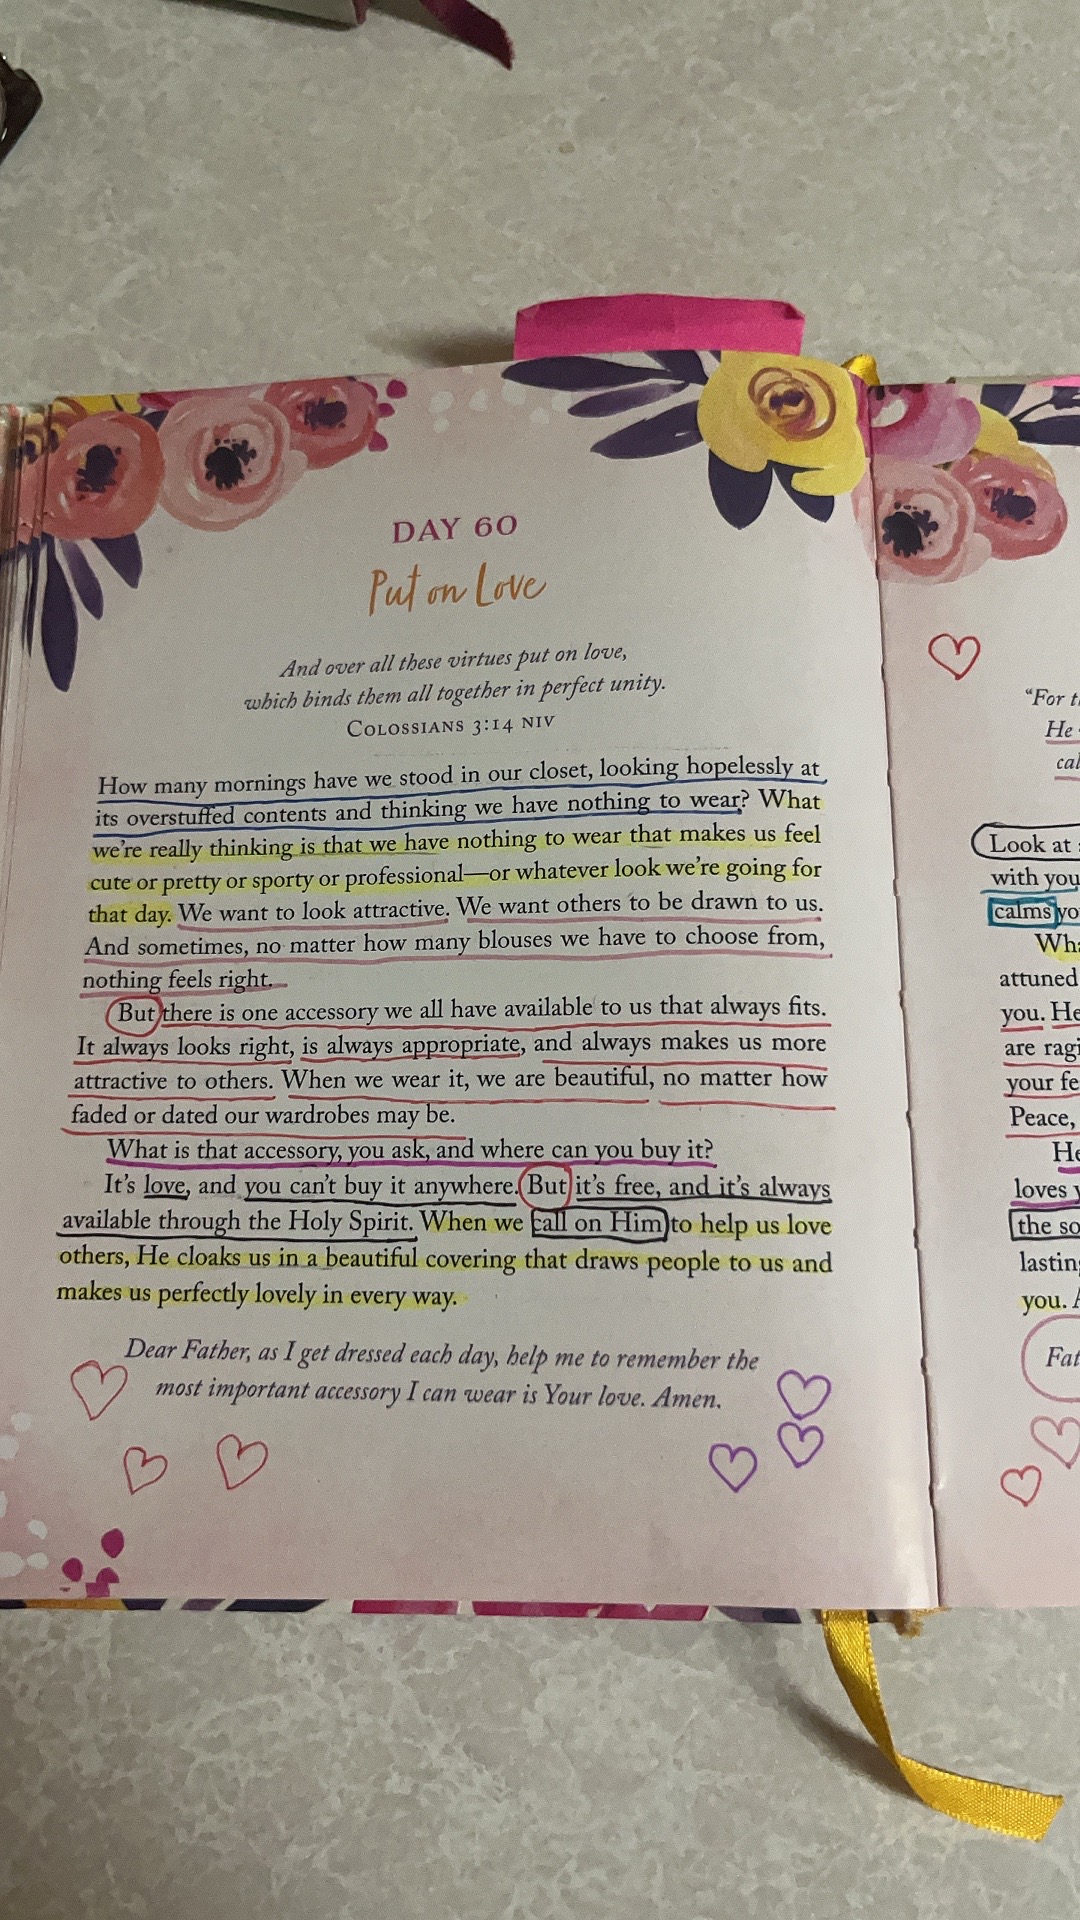 DAY 60
Put on Love
And over all these virtues put on love,
which binds them all together in perfect unity.
COLOSSIANS 3:14 NIV
How many mornings have we stood in our closet, looking hopelessly at
its overstuffed contents and thinking we have nothing to wear? What
we're really thinking is that we have nothing to wear that makes us feel
cute or pretty or sporty or professional—or whatever look we're going for
that day. We want to look attractive. We want others to be drawn to us.
And sometimes, no matter how many blouses we have to choose from,
nothing feels right.
But there is one accessory we all have available to us that always fits.
It always looks right, is always appropriate, and always makes us more
attractive to others. When we wear it, we are beautiful, no matter how
faded or dated our wardrobes may be.
What is that accessory, you ask, and where can you buy it?
It's love, and you can't buy it anywhere. But it's free, and it's always
available through the Holy Spirit. When we call on Him to help us love
others, He cloaks us in a beautiful covering that draws people to us and
makes us perfectly lovely in every way.
Dear Father, as I get dressed each day, help me to remember the
most important accessory I can wear is Your love. Amen.
"For
He
Look at
with you
calms
attuned
you. He
are
your
Peace,
He
loves
the
you.